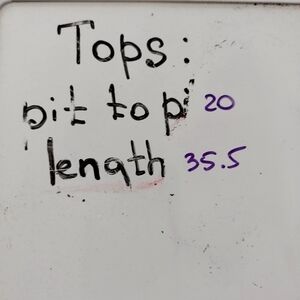 Tops:
pit to pi 20
length 35.5